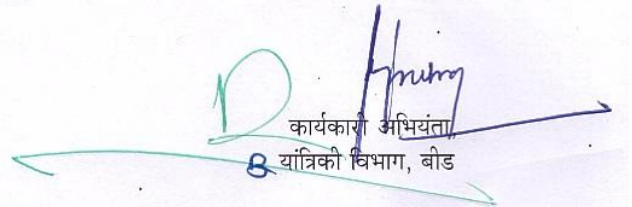 कार्यकारी अभियंता
यांत्रिकी विभाग, बीड